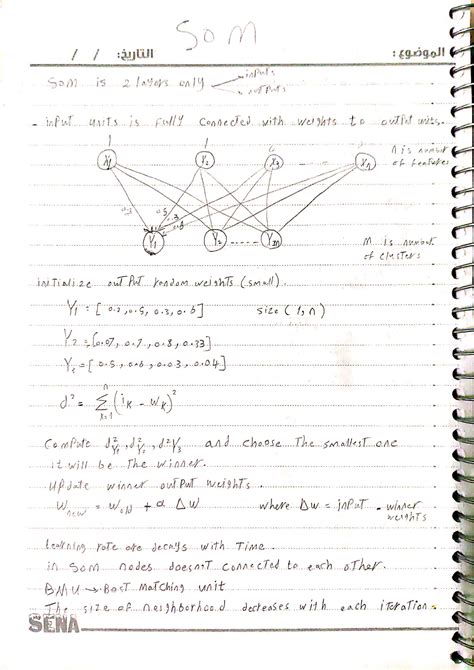 SOM
الموضوع: التاريخ: / /
SOM is 2 layers only inputs
outputs
- input units is fully connected with weights to output units.
1 1
X1 Y2 X3 ... Xn n is number
of features
0.2 0.5 0.3 0.6
Y1 Y2 ...... Ym M is number
of clusters
initialize output random weights (small).
Y1 = [ 0.2, 0.5, 0.3, 0.6 ] size (1, n)
Y2 = [0.07, 0.7, 0.8, 0.33]
= [ 0.5, 0.6, 0.03, 0.04 ]
d² = Σ (iK - wK)²
n
Compute d²Y1, d²Y2, d²Y3 and choose the smallest one
it will be the winner.
update winner output weights.
Wnew = Wold + α ΔW where ΔW = input - winner
weights
Learning rate are decays with time.
in SOM nodes doesn't connected to each other.
BMU → Best matching unit
The size of neighborhood decreases with each iteration.
SENA